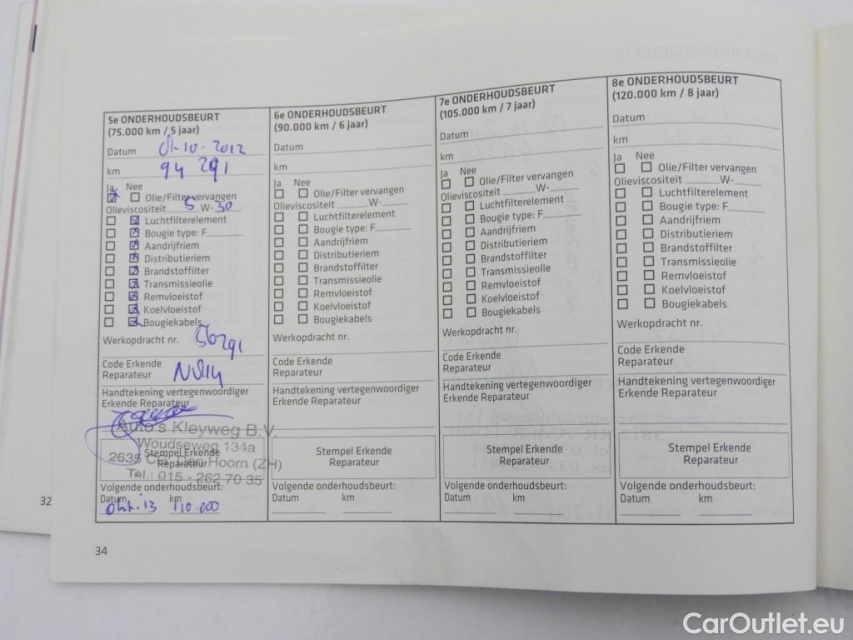 5e ONDERHOUDSBEURT
(75.000 km / 5 jaar)
Datum 01-10-2012
km 94 291
Ja Nee
Olie/Filter vervangen
Olieviscositeit 5 W- 30
Luchtfilterelement
Bougie type: F
Aandrijfriem
Distributieriem
Brandstoffilter
Transmissieolie
Remvloeistof
Koelvloeistof
Bougiekabels
Werkopdracht nr. 56291
Code Erkende
Reparateur
Handtekening vertegenwoordiger
Erkende Reparateur
Auto's Kleyweg B.V.
Woudseweg 134a
Stempel Erkende
Reparateur
2635 Den Hoorn (ZH)
Tel.: 015 - 262 70 35
Volgende onderhoudsbeurt:
Datum km
okt. '13 110.000
6e ONDERHOUDSBEURT
(90.000 km / 6 jaar)
Datum
km
Ja Nee
Olie/Filter vervangen
Olieviscositeit W-
Luchtfilterelement
Bougie type: F
Aandrijfriem
Distributieriem
Brandstoffilter
Transmissieolie
Remvloeistof
Koelvloeistof
Bougiekabels
Werkopdracht nr.
Code Erkende
Reparateur
Handtekening vertegenwoordiger
Erkende Reparateur
Stempel Erkende
Reparateur
Volgende onderhoudsbeurt:
Datum km
7e ONDERHOUDSBEURT
(105.000 km / 7 jaar)
Datum
km
Ja Nee
Olie/Filter vervangen
Olieviscositeit W-
Luchtfilterelement
Bougie type: F
Aandrijfriem
Distributieriem
Brandstoffilter
Transmissieolie
Remvloeistof
Koelvloeistof
Bougiekabels
Werkopdracht nr.
Code Erkende
Reparateur
Handtekening vertegenwoordiger
Erkende Reparateur
Stempel Erkende
Reparateur
Volgende onderhoudsbeurt:
Datum km
8e ONDERHOUDSBEURT
(120.000 km / 8 jaar)
Datum
km
Ja Nee
Olie/Filter vervangen
Olieviscositeit W-
Luchtfilterelement
Bougie type: F
Aandrijfriem
Distributieriem
Brandstoffilter
Transmissieolie
Remvloeistof
Koelvloeistof
Bougiekabels
Werkopdracht nr.
Code Erkende
Reparateur
Handtekening vertegenwoordiger
Erkende Reparateur
Stempel Erkende
Reparateur
Volgende onderhoudsbeurt:
Datum km
32
34
CarOutlet.eu